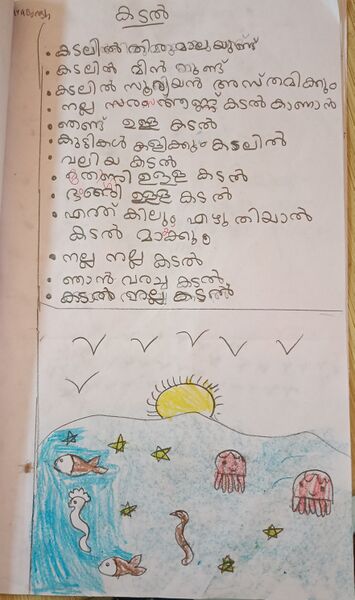 കടൽ
• കടലിൽ തിരുമാലയുണ്ട്
• കടലിൽ മീൻ ഉണ്ട്
• കടലിൽ സൂര്യൻ അസ്തമിക്കും
• നല്ല രസമാണ് കടൽ കാണാൻ
• ഞണ്ട് ഉള്ള കടൽ
• കുട്ടികൾ കളിക്കും കടലിൽ
• വലിയ കടൽ
• ഉള്ള കടൽ
• ഉള്ള കടൽ
• എന്ത് കിലും എഴുതിയാൽ
കടൽ മായ്ക്കും
• നല്ല നല്ല കടൽ
• ഞാൻ വരച്ച കടൽ
• കടൽ നല്ല കടൽ